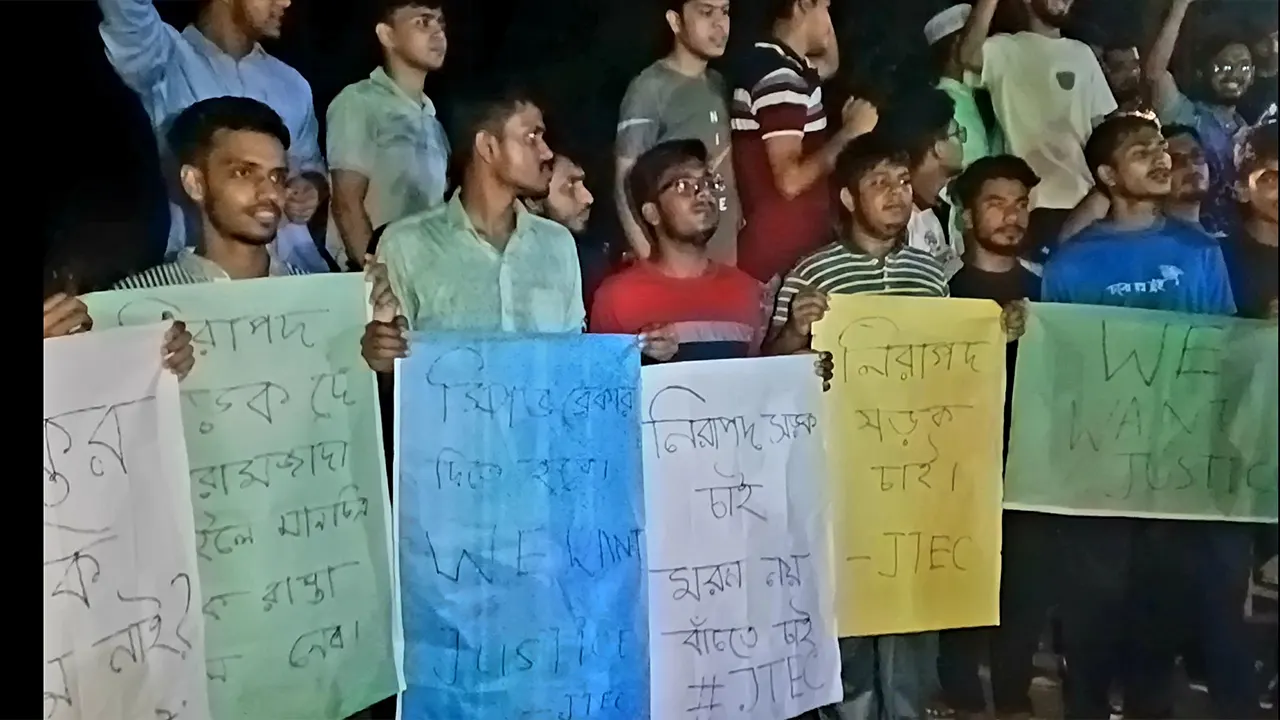 রাপদ
ড়ক দে
রামজাদা
ইলে মানচিত্র
ক রাস্তা
নেব।
ক
নাই?
স্পিড ব্রেকার
দিতে হবে।
WE WANT
JUSTICE
- JTEC
নিরাপদ সড়ক
চাই
মরন নয়
বাঁচতে চাই
#JTEC
নিরাপদ
ষড়ক
চাই।
- JTEC
WE
WANT
JUSTIC